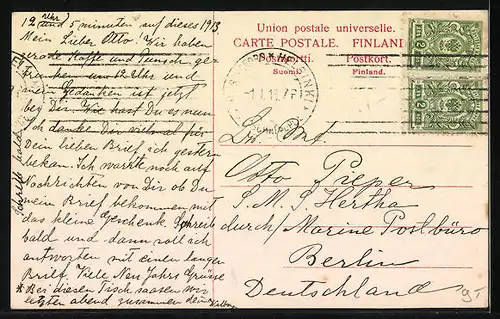 12 Uhr (und) 5 minuten auf dieses 1913.
Mein Lieber Otto. Wir haben
gerade Kaffe und Punsch ge-
trunken um 12 Uhr und
mein Gedanken ist jetzt
bei Dir. Wie hast Du es mein
Ich danke Dir vielmal für
dein lieben Brief ich gestern
bekan. Ich wartke noch auf
Nachrichten von Dir ob Du
mein Brief bekommen mit
das kleine Geschenk. Schreib
bald und dann soll ich
antworten mit einen langen
Brief. Viele Neu Jahrs Grüsse
* Bei diesen Tisch saasen wir
letzten abend zusammen deine
Union postale universelle.
CARTE POSTALE. FINLAND
Postikortti. Postkort.
Suomi. Finland.
Otto Pieper
S. M. S. Hertha
durch/Marine Postbüro
Berlin
Deutschland